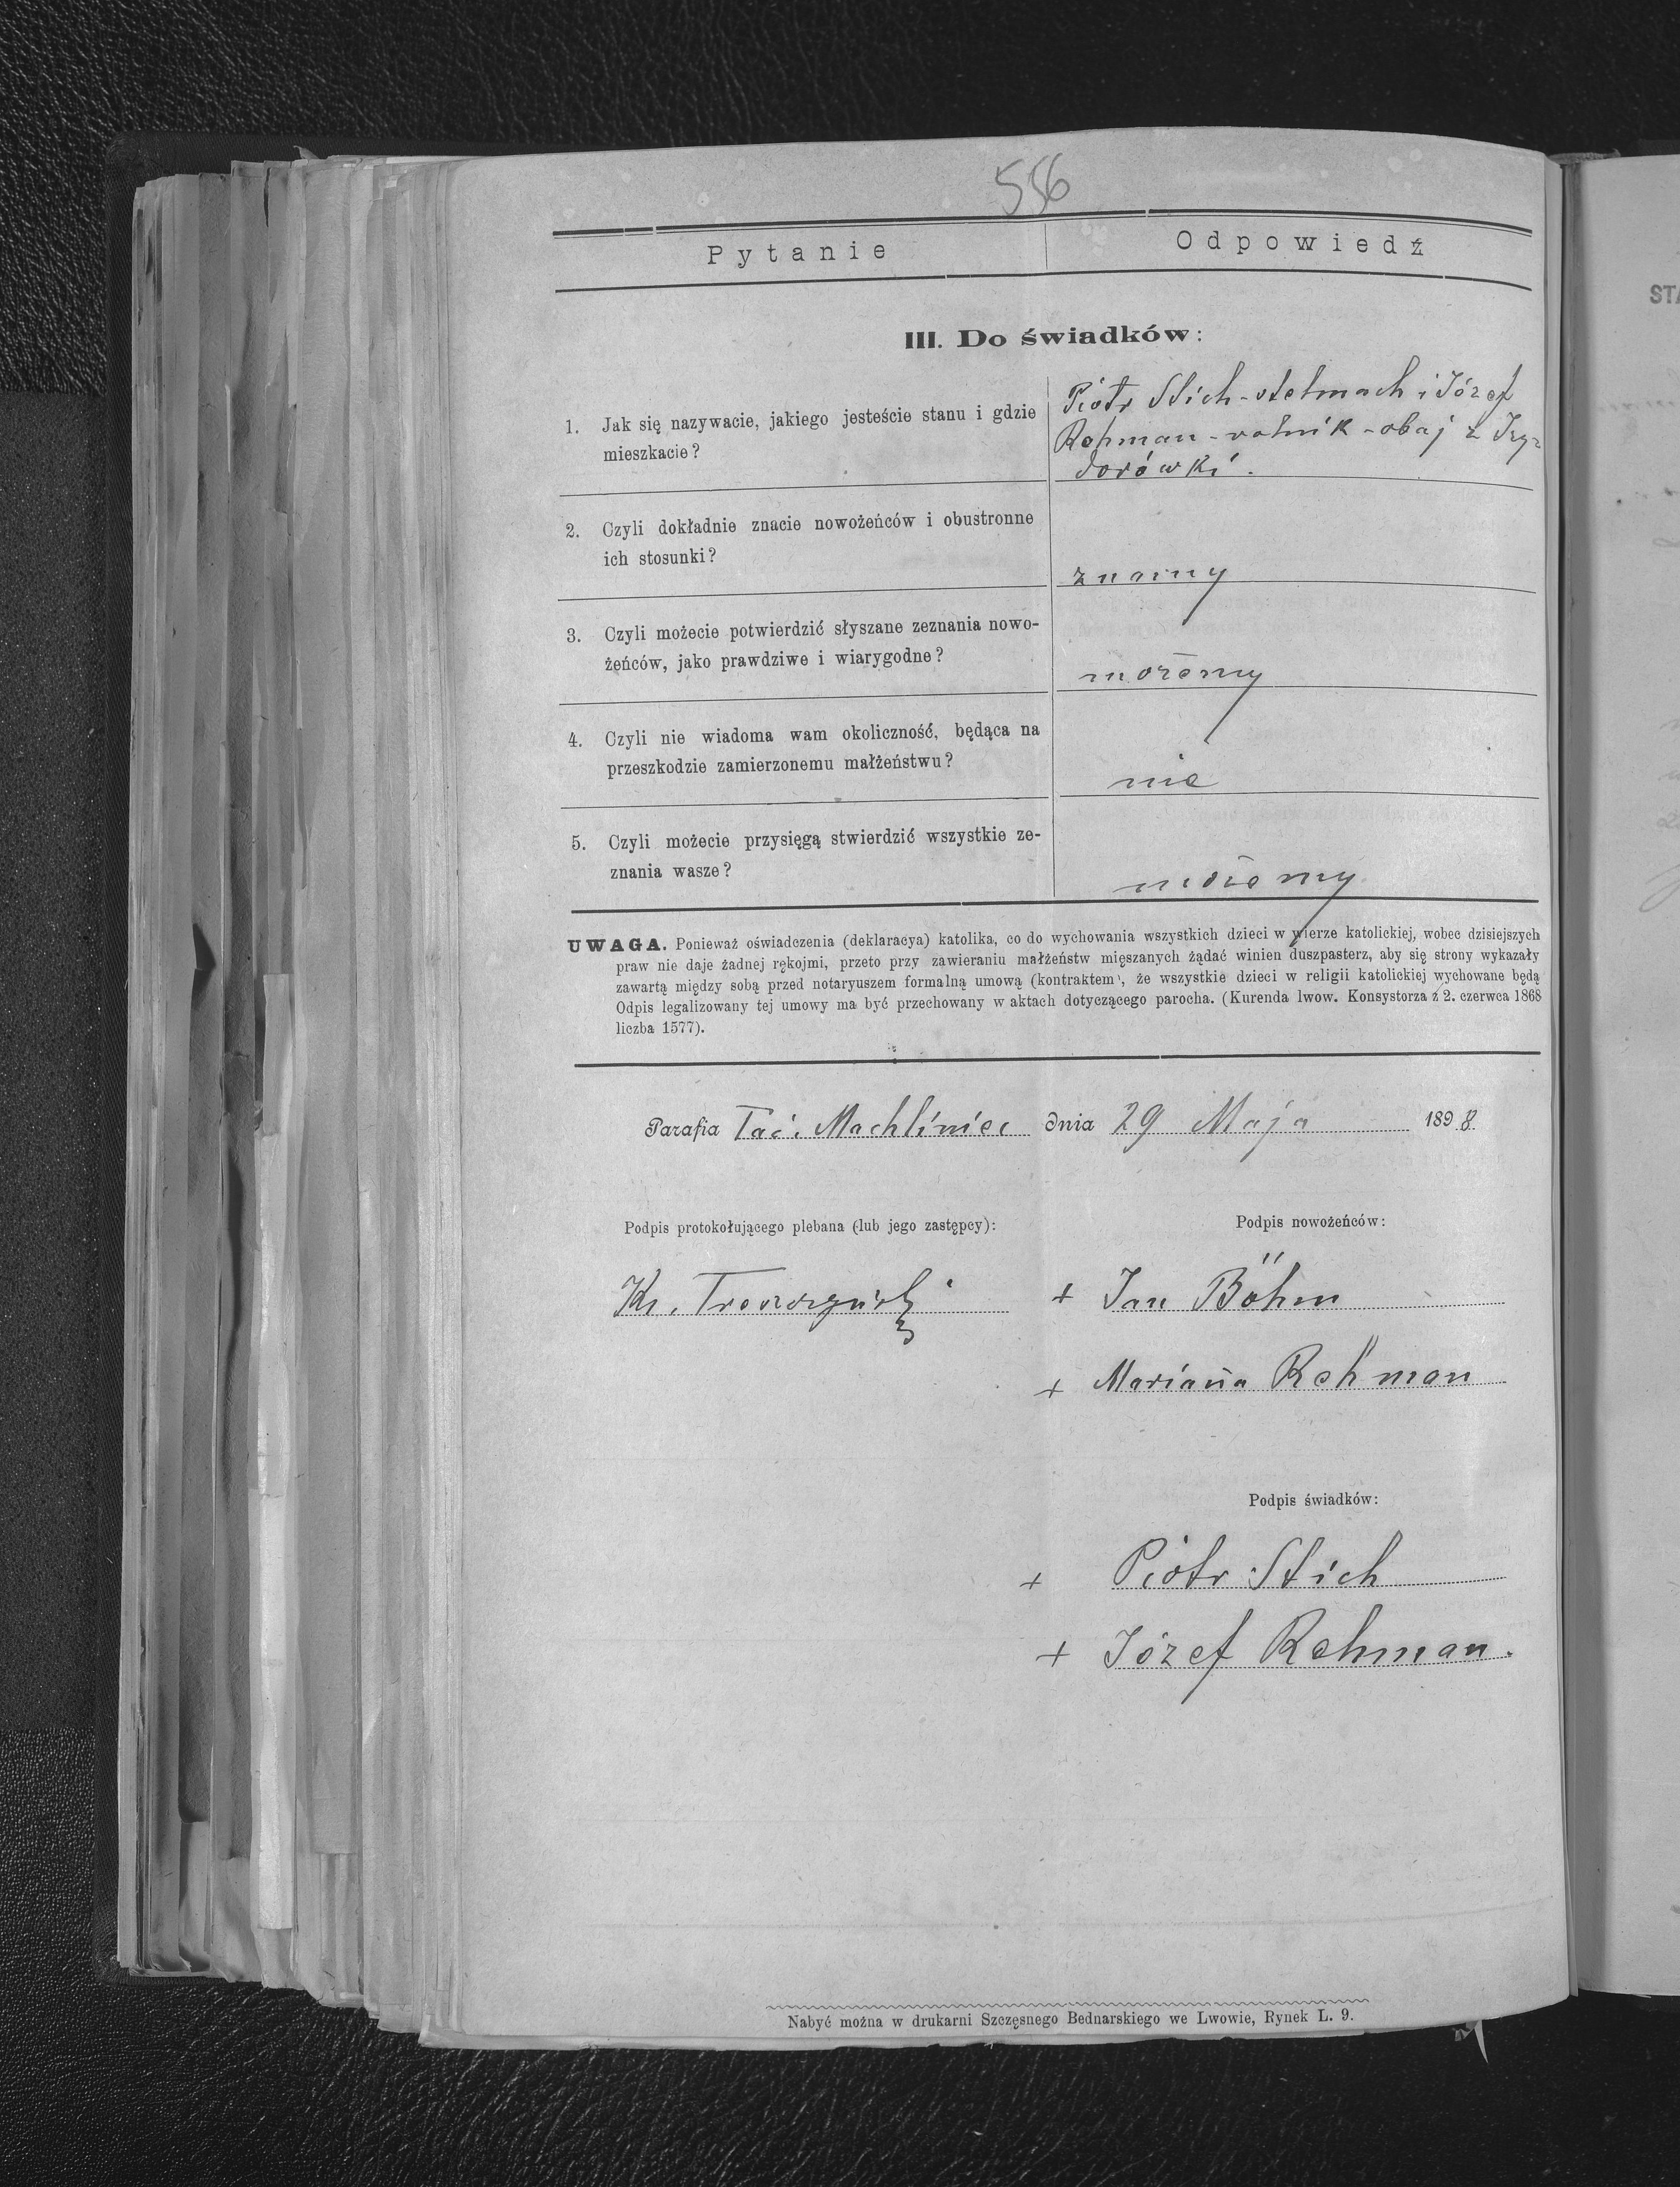 556
Pytanie
Odpowiedź
III. Do świadków:
1. Jak się nazywacie, jakiego jesteście stanu i gdzie
mieszkacie?
Piotr Stich - stelmach i Józef
Rehman - rolnik - obaj z Izy-
dorówki.
2. Czyli dokładnie znacie nowożeńców i obustronne
ich stosunki?
znamy
3. Czyli możecie potwierdzić słyszane zeznania nowo-
żeńców, jako prawdziwe i wiarygodne?
możemy
4. Czyli nie wiadoma wam okoliczność, będąca na
przeszkodzie zamierzonemu małżeństwu?
nie
5. Czyli możecie przysięgą stwierdzić wszystkie ze-
znania wasze?
możemy
UWAGA. Ponieważ oświadczenia (deklaracya) katolika, co do wychowania wszystkich dzieci w wierze katolickiej, wobec dzisiejszych
praw nie daje żadnej rękojmi, przeto przy zawieraniu małżeństw mięszanych żądać winien duszpasterz, aby się strony wykazały
zawartą między sobą przed notaryuszem formalną umową (kontraktem), że wszystkie dzieci w religii katolickiej wychowane będą
Odpis legalizowany tej umowy ma być przechowany w aktach dotyczącego parocha. (Kurenda lwow. Konsystorza z 2. czerwca 1868
liczba 1577).
Parafia Łać. Machliniec dnia 29 Maja 1898
Podpis protokołującego plebana (lub jego zastępcy):
Podpis nowożeńców:
+ Jan Böhm
+ Marianna Rehman
Podpis świadków:
+ Piotr Stich
+ Józef Rehman.
Nabyć można w drukarni Szczęsnego Bednarskiego we Lwowie, Rynek L. 9.
STA